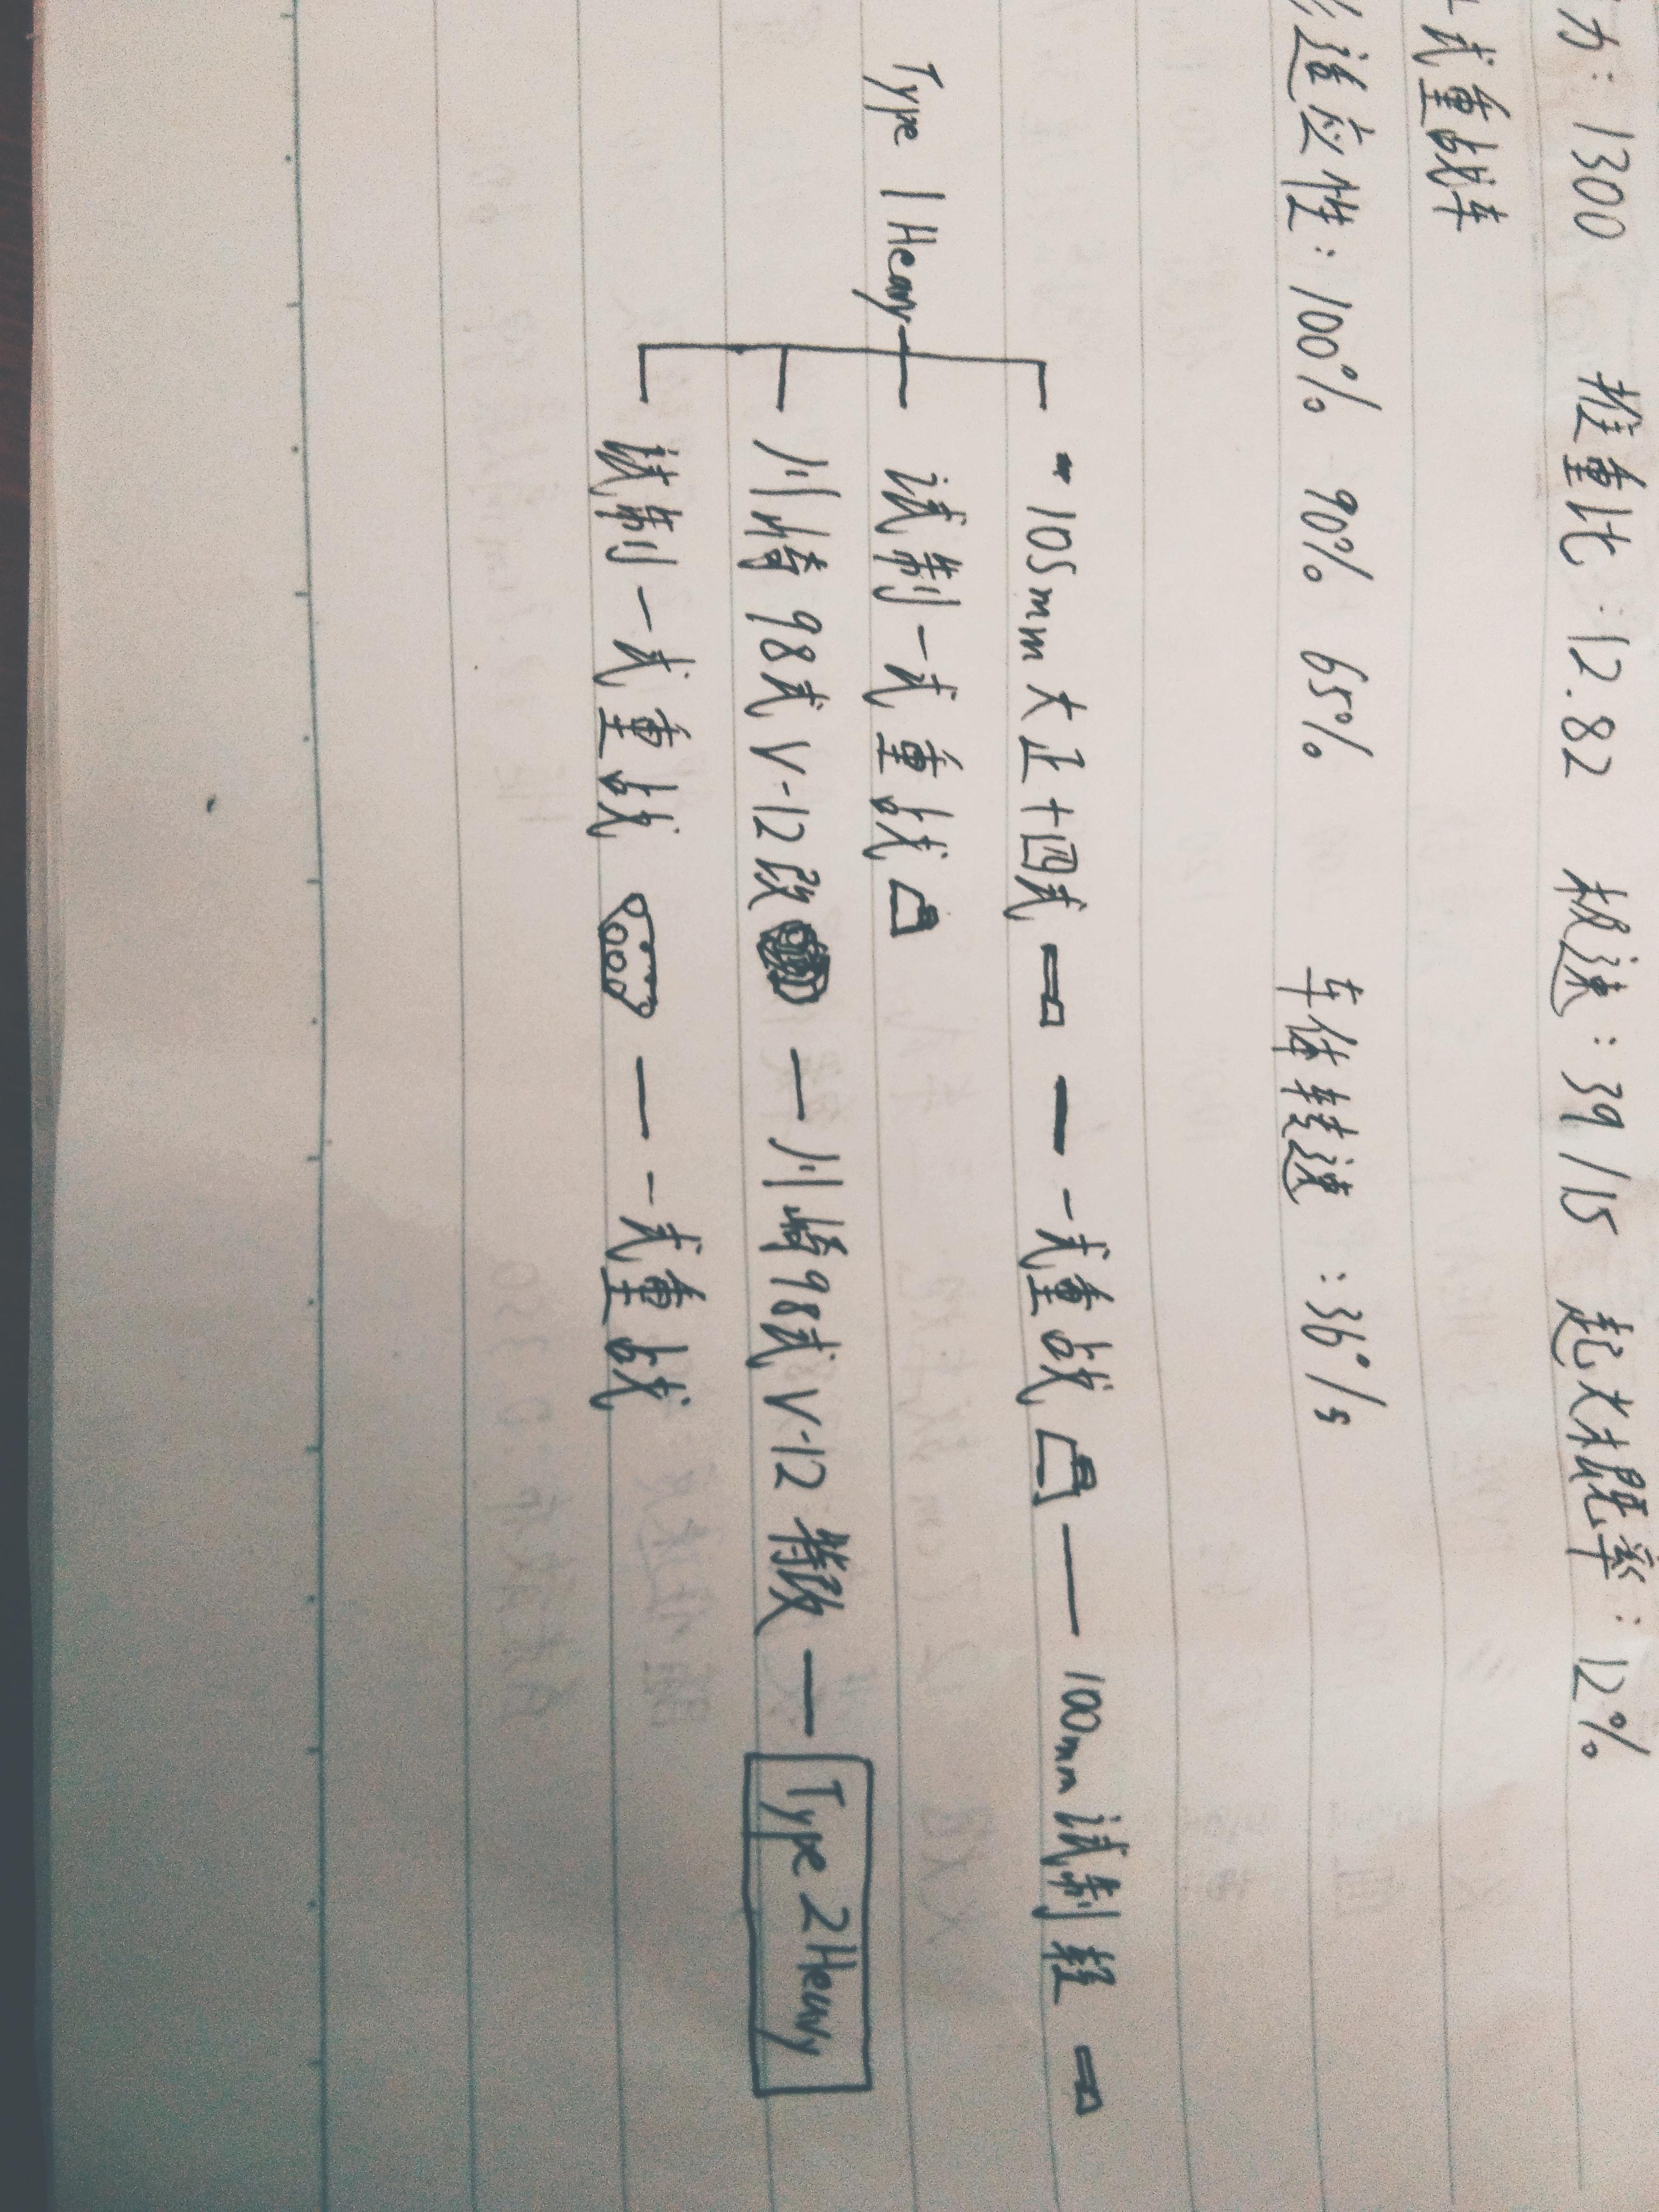 力：1300 推重比：12.82 极速：39/15 起火概率：12%
式重战车
适应性：100% 90% 65% 车体转速：36°/s
105mm大正十四式 — 一式重战 — 100mm试制轻
Type 1 Heavy 试制一式重战
川崎98式V-12改 — 川崎98式V-12特改 — Type 2 Heavy
试制一式重战 — 一式重战